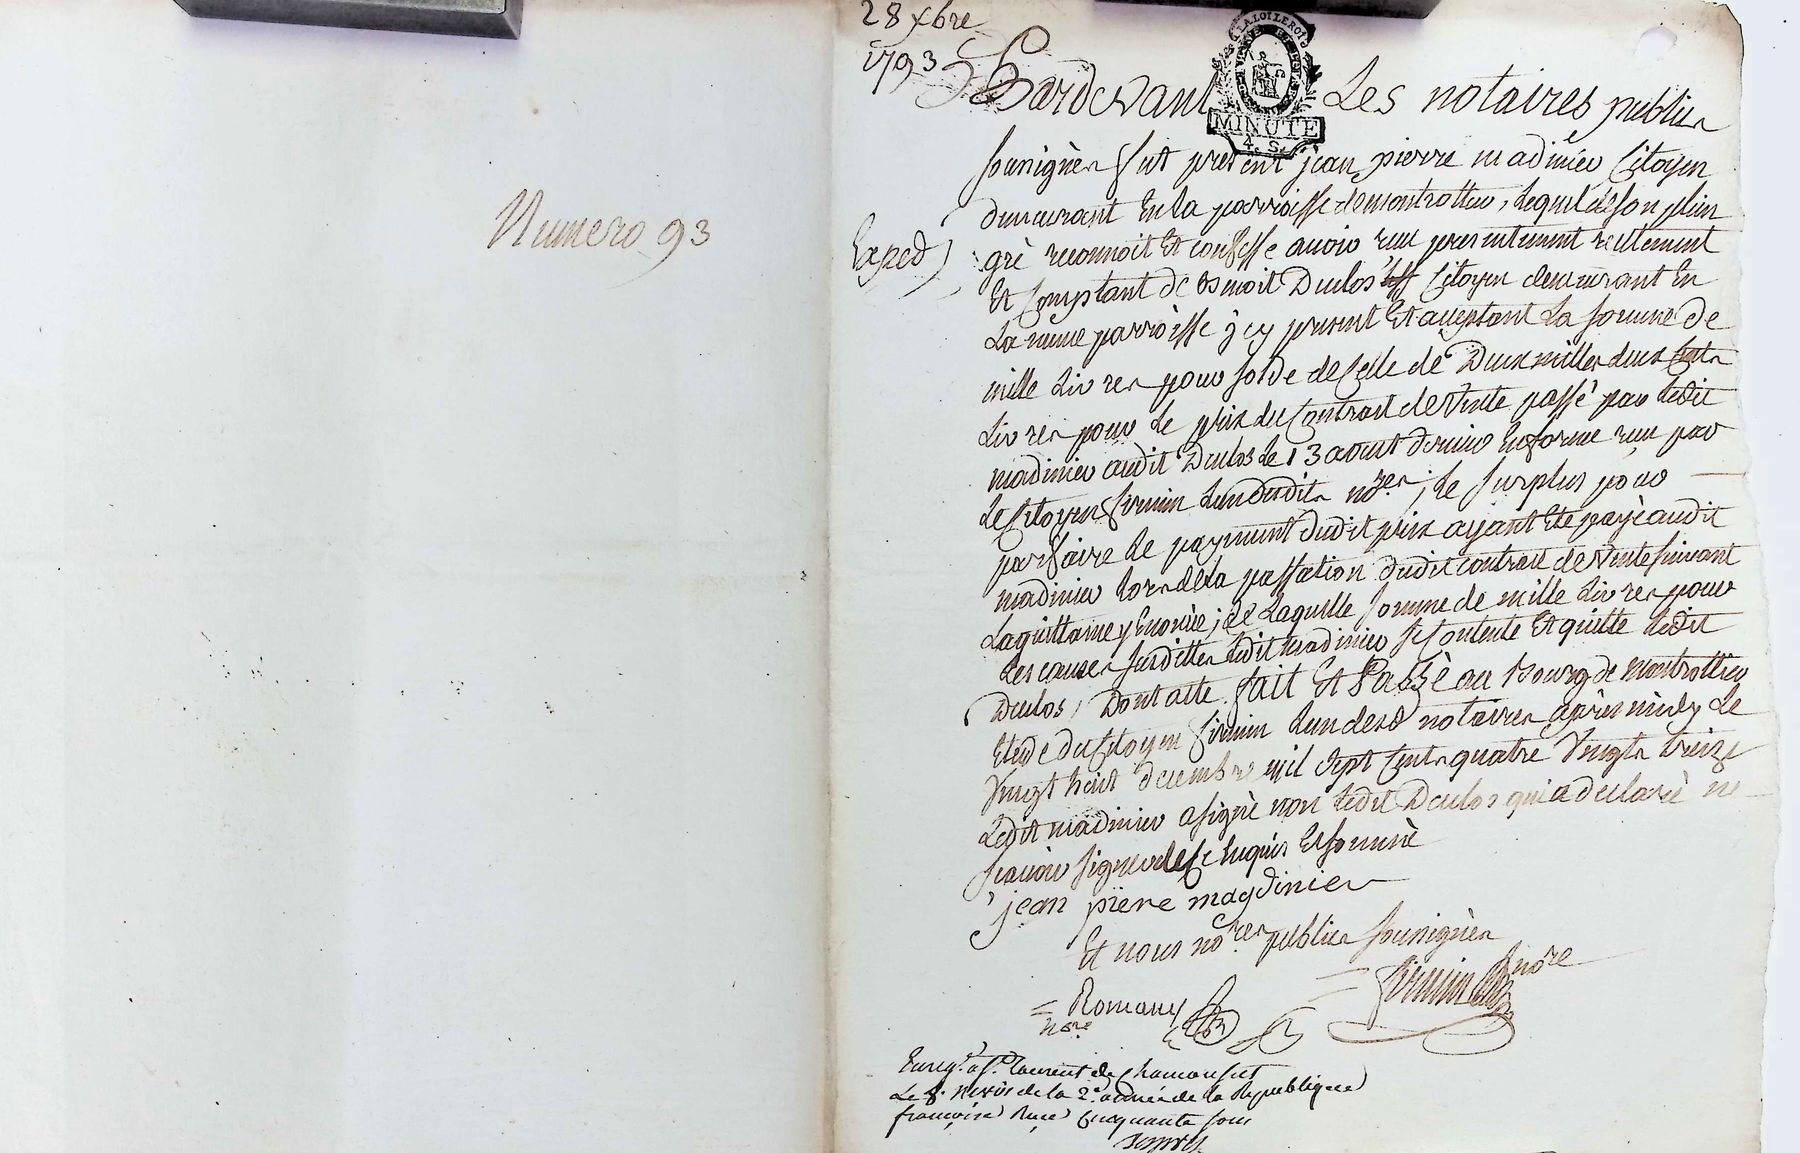 Numero 93
28 xbre
1793
LA LOI LE ROI
MINUTE
4. S.
Pardevant Les notaires publics
sousignès fut present jean pierre madinier Citoyen
demeurant En la parroisse de montrottier, Lequel de son plein
Exped
grè reconnoit Et confesse avoir reçu presentement reellement
Et Comptant de Benoit Duclos Citoyen demeurant En
La même parroisse jcy present Et acceptant La somme de
mille Livres pour solde de Celle de Deux milles deux Cents
Livres pour Le prix du Contrat de Vente passé par Ledit
madinier audit Duclos Le 13 aout dernier En forme reçu par
Le Citoyen firmin L'un desdits nores, Le surplus pour
parfaire Le payement dudit prix ayant Eté payè audit
madinier Lors de La passation dudit contrat de Vente suivant
La quittance y Enoncée; de Laquelle somme de mille Livres pour
Les causes susdittes Ledit madinier se Contente Et quitte Ledit
Duclos, Dont acte fait Et Passè au Bourg de montrottier
Etude du Citoyen firmin L'un desd notaires après midy Le
Vingt huit decembre mil sept Cents quatre Vingts treize
Ledit madinier a signè non Ledit Duclos qui a declarè ne
scavoir signer de Ce Enquis Et sommè
jean piere magdinier
Et nous nores publics sousignès
Romany
nore
firmin nore
Enregt. a St. laurent de Chamousset
Le 8. nivos de la 2e. année de la Republique
francoise Reçu Cinquante sous